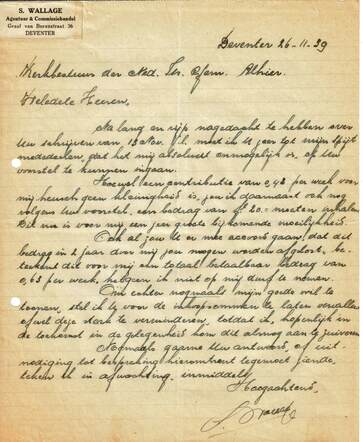 S. WALLAGE
Agentuur & Commissiehandel
Graaf van Burenstraat 36
DEVENTER
Deventer 26-11-39
Kerkbestuur der Ned. Isr. Gem. Alhier.
Weledele Heeren,
Na lang en rijp nagedacht te hebben over
Uw schrijven van 15 Nov. moet ik U zeer tot mijn spijt
mededeelen, dat het mij absoluut onmogelijk is, op Uw
voorstel te kunnen ingaan.
Hoewel een contributie van 0,48 per week voor
mij heusch geen kleinigheid is, zou ik daarnaast ook nog
volgens Uw voorstel, een bedrag van 20.- moeten
Dit nu is voor mij een zeer groote bijkomende moeilijkheid.
Ook al zou U er mee accoord gaan, dat dit
bedrag in 2 jaar door mij zou mogen worden afgelost, be-
teekent dit voor mij een totaal betaalbaar bedrag van
0,65 per week, hetgeen ik niet op mij durf te nemen.
Om echter nogmaals mijn goede wil te
toonen, stel ik U voor de inkoopsommen te laten vervallen
ofwel deze sterk te verminderen, zoodat ik, hopenlijk in
de toekomst in de gelegenheid kom dit alsnog aan te zuiveren
gaarne Uw antwoord, of uit-
noodiging tot bespreking hieromtrent tegemoet ziende,
teeken ik in afwachting, inmiddels
Hoogachtend,